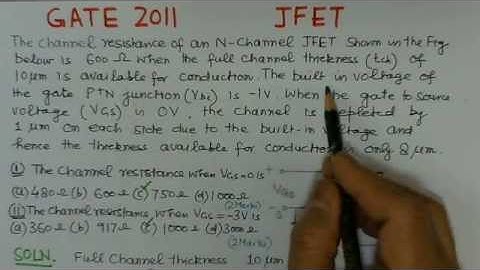 GATE 2011 JFET
The channel resistance of an N-Channel JFET Shown in the Fig
below is 600 Ω when the full channel thickness (tch) of
10μm is available for conduction. The built in voltage of
the gate PTN junction (Vbi) is -1V. When the gate to source
voltage (VGS) is 0V, the channel is depleted by
1 μm on each side due to the built-in voltage and
hence the thickness available for conduction is only 8 μm.
(i) The channel resistance when VGS=0 is
VGS
(a) 480Ω (b) 600 Ω (c) 750 Ω (d) 1000 Ω
(2 Marks)
(ii) The channel resistance, when VGS = -3V is
(a) 360 Ω (b) 917 Ω (c) 1000 Ω (d) 3000
(2 Marks)
SOLN. Full Channel thickness 10 μm